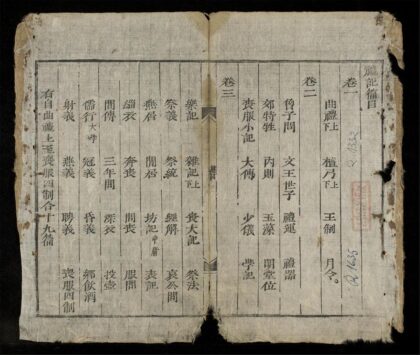 禮記目
卷一
曲禮上下 檀弓上下 王制 月令
卷二
曾子問 文王世子 禮運 禮器
郊特牲 內則 玉藻 明堂位
喪服小記 大傳 少儀 學記
卷三
樂記 雜記上下 喪大記 祭法
祭義 祭統 經解 哀公問
燕居 閒居 坊記中庸 表記
緇衣 奔喪 問喪 服問
間傳 三年問 深衣 投壺
儒行大學 冠義 昏義 鄉飲酒
射義 燕義 聘義 喪服四制
右自曲禮上至喪服四制合十九
R.1635